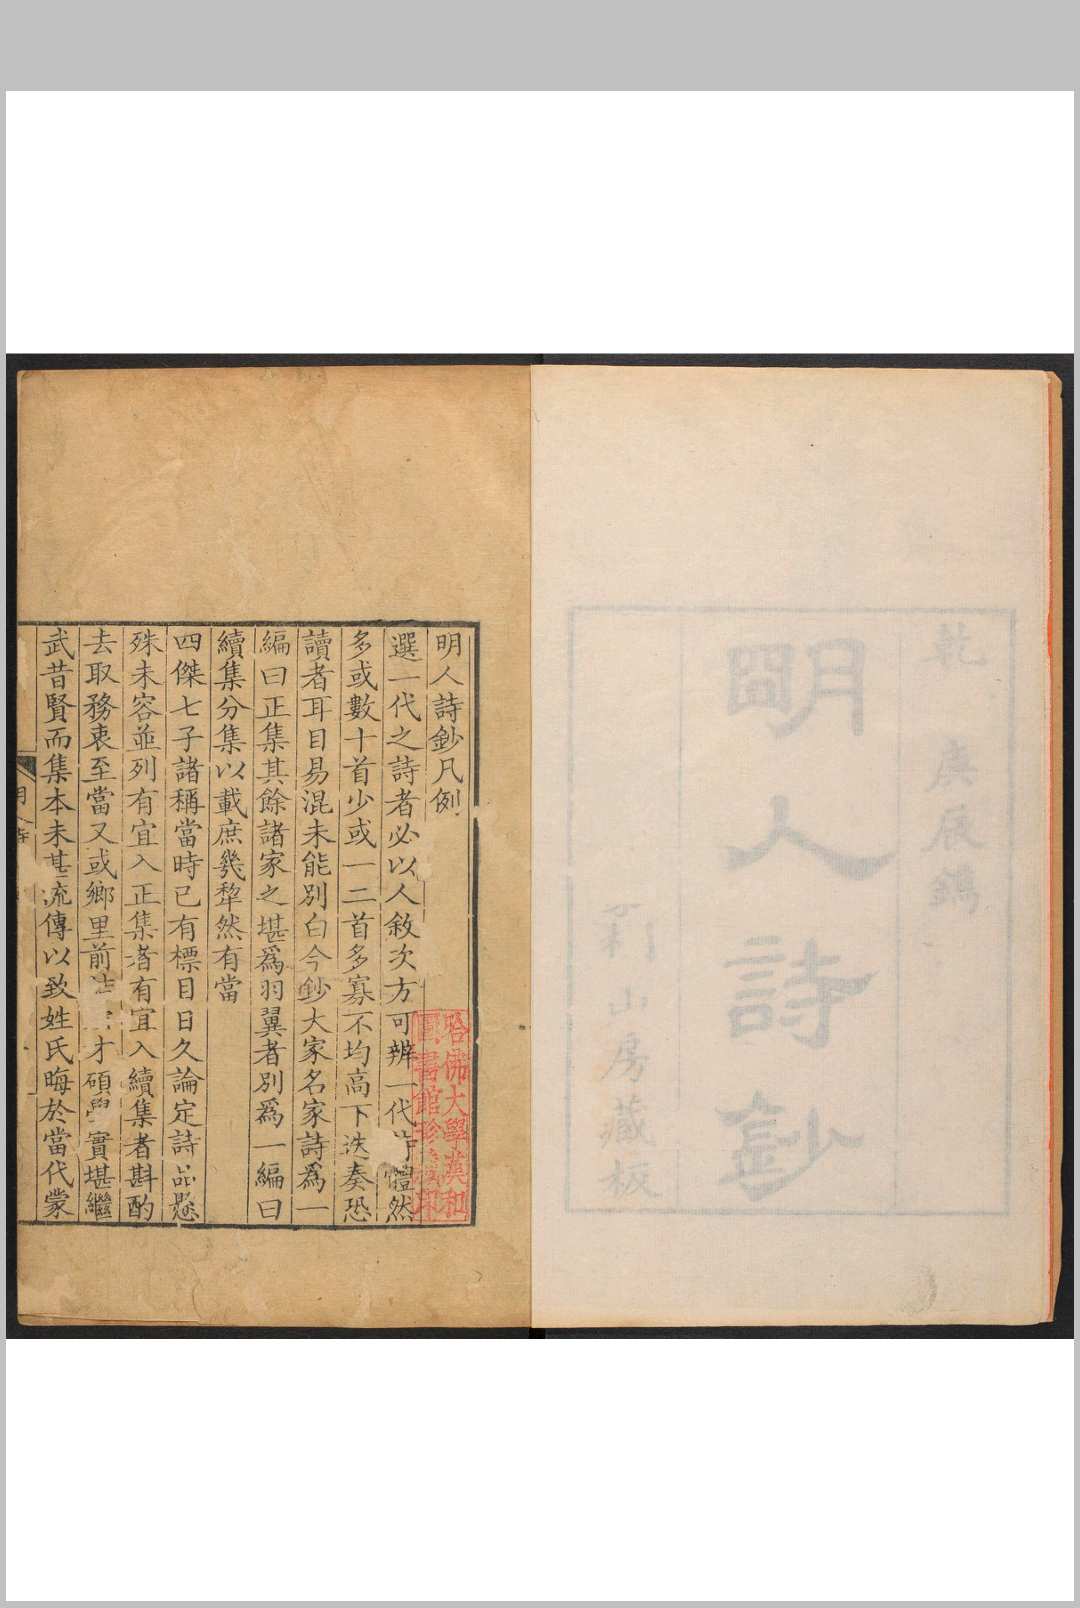 乾 庚辰鐫
明人詩鈔
山房藏板
明人詩鈔凡例
選一代之詩者必以人敘次方可辨一代詩體然
多或數十首少或一二首多寡不均高下迭奏恐
讀者耳目易混未能別白今鈔大家名家詩爲一
編曰正集其餘諸家之堪爲羽翼者別爲一編曰
續集分集以載庶幾犂然有當
四傑七子諸稱當時已有標目日久論定詩品懸
殊未容並列有宜入正集者有宜入續集者斟酌
去取務衷至當又或鄉里前才碩學實堪繼
武昔賢而集本未甚流傳以致姓氏晦於當代蒙
哈佛大學漢和
圖書館珍藏印